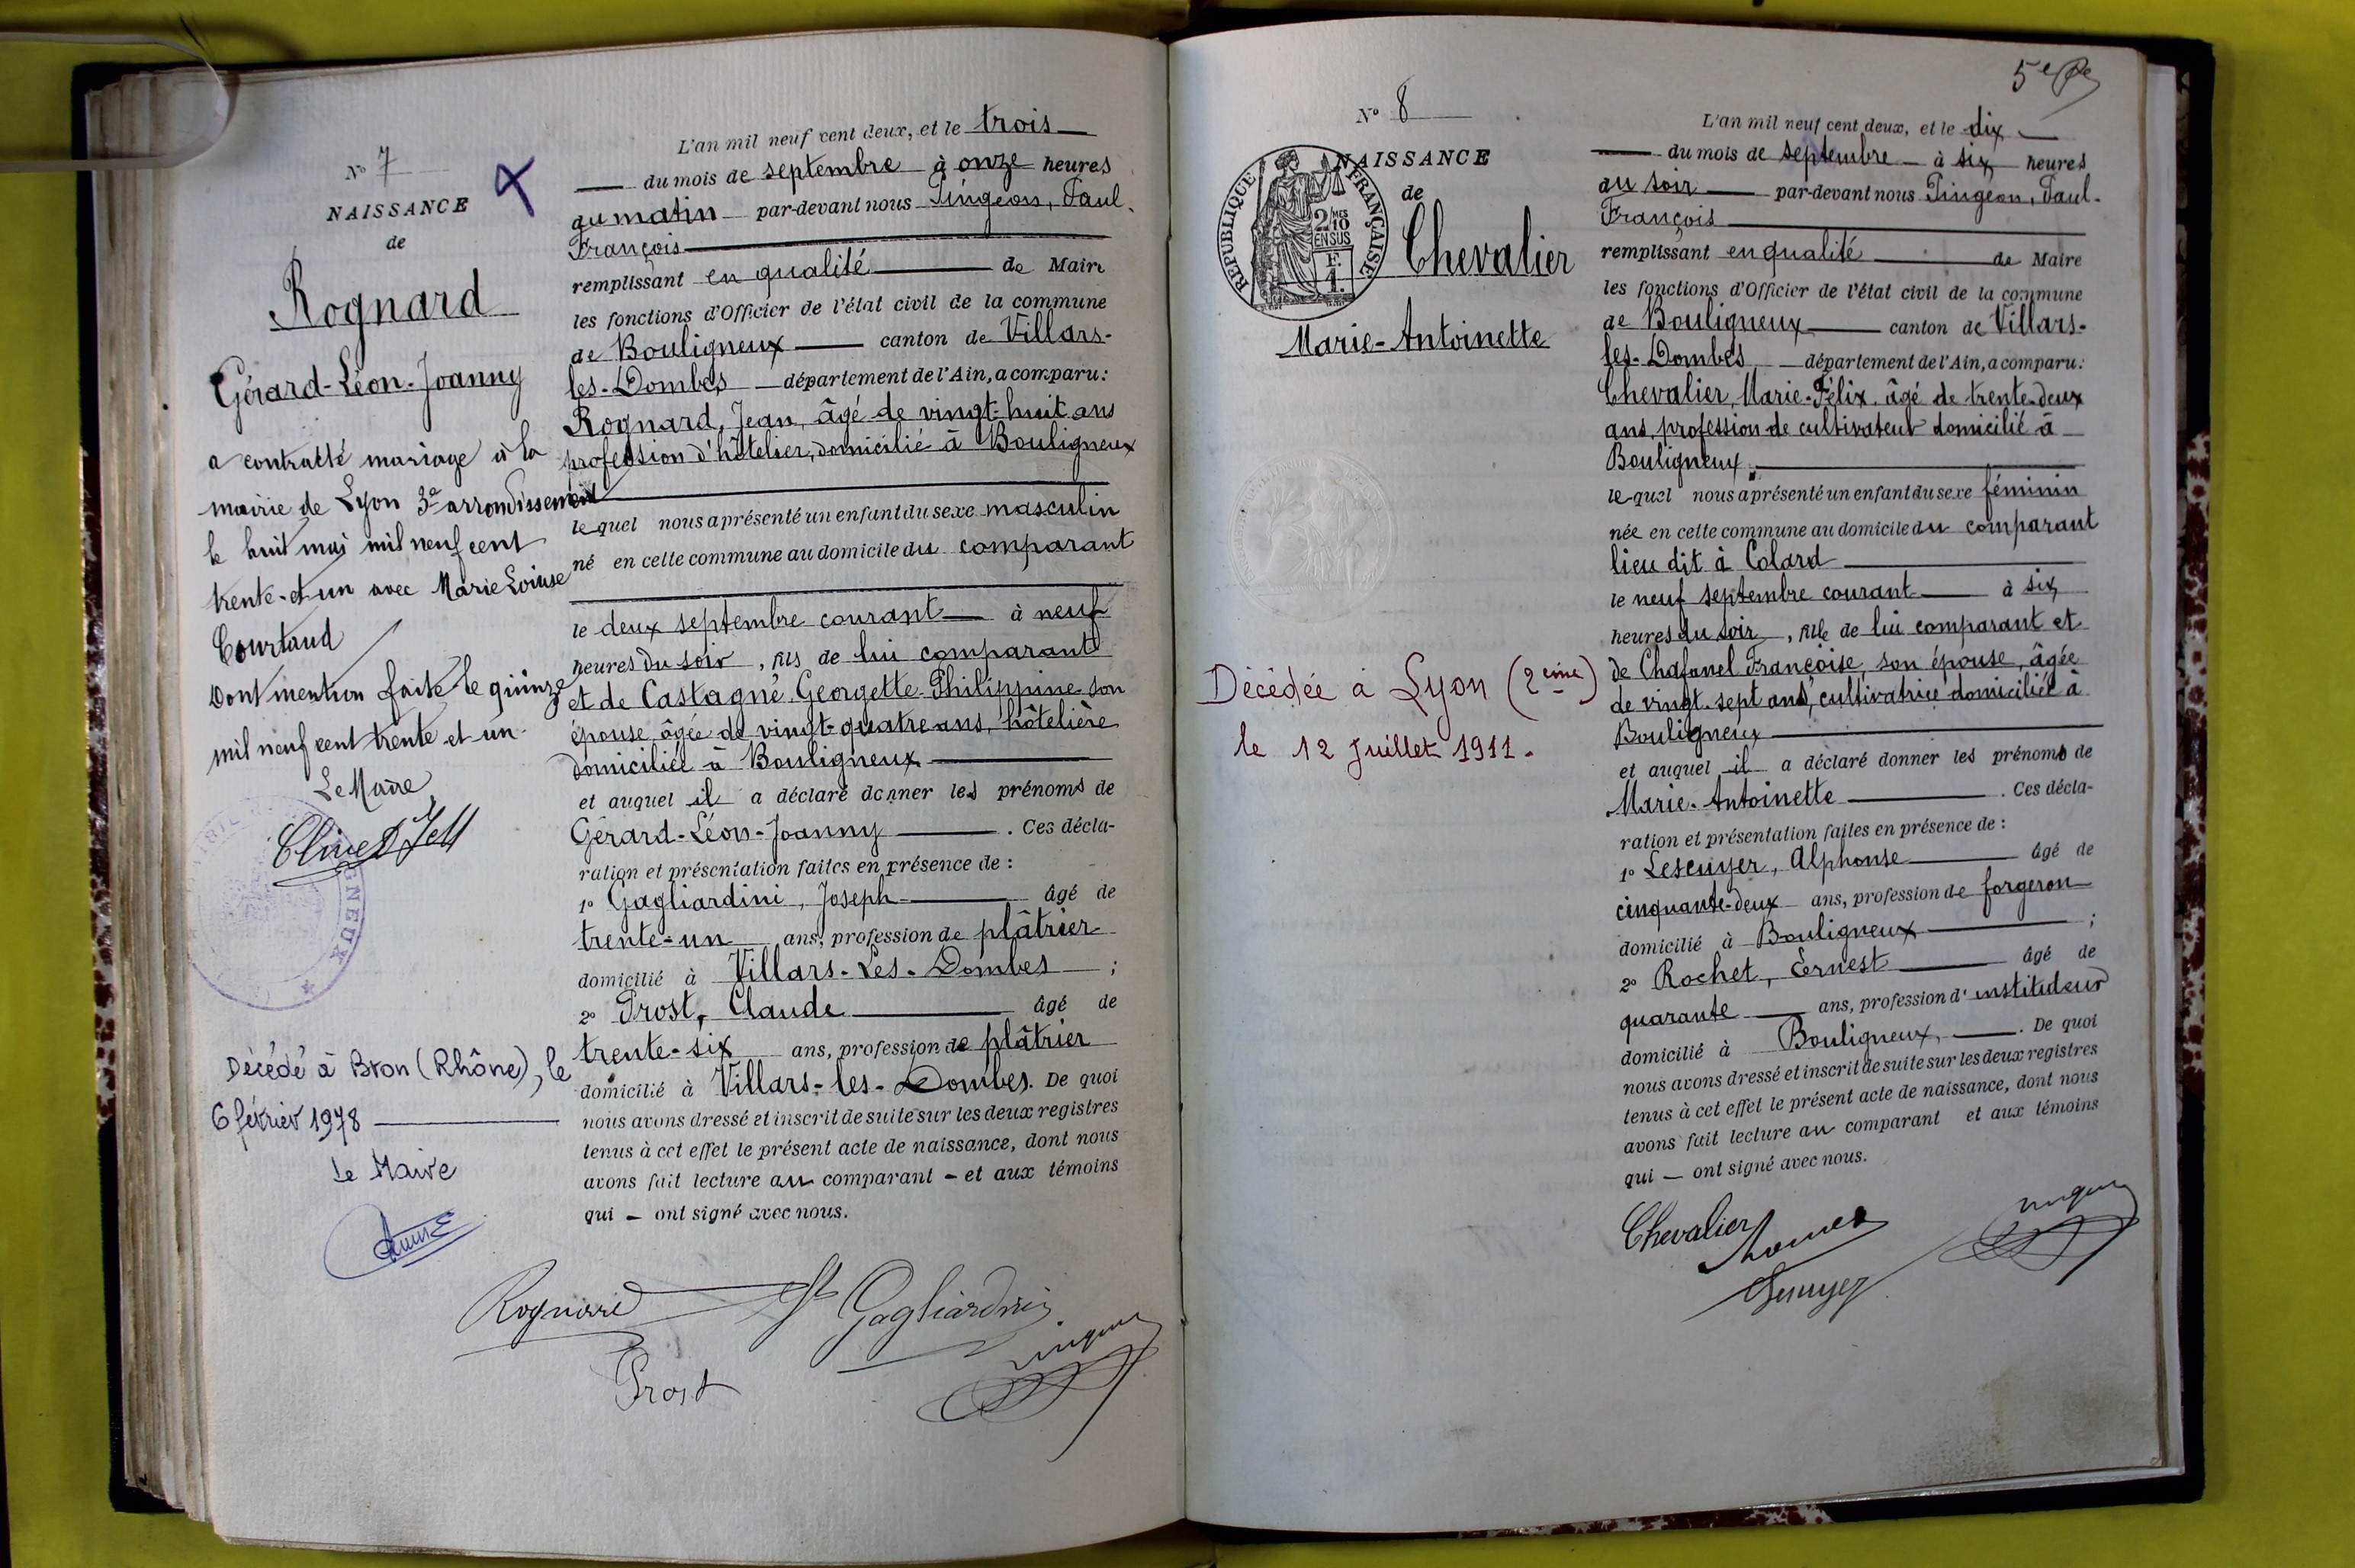 N° 7
NAISSANCE
de
Rognard
Gérard-Léon-Joanny
a contracté mariage à la
mairie de Lyon 3e arrondissement
le huit mai mil neuf cent
trente-et-un avec Marie Louise
Courtaud
Dont mention faite le quinze
mil neuf cent trente et un
Le Maire
GNEUX
Décédé à Bron (Rhône), le
6 février 1978
Le Maire
L'an mil neuf cent deux, et le trois
du mois de septembre à onze heures
du matin par-devant nous Pingeon, Paul-
François
remplissant en qualité de Maire
les fonctions d'Officier de l'état civil de la commune
de Bouligneux canton de Villars-
les-Dombes département de l'Ain, a comparu:
Rognard, Jean, âgé de vingt-huit ans
profession d'hôtelier, domicilié à Bouligneux
lequel nous a présenté un enfant du sexe masculin
né en cette commune au domicile du comparant
le deux septembre courant à neuf
heures du soir, fils de lui comparant
et de Castagné Georgette-Philippine son
épouse, âgée de vingt-quatre ans, hôtelière
domiciliée à Bouligneux
et auquel il a déclaré donner les prénoms de
Gérard-Léon-Joanny. Ces décla-
ration et présentation faites en présence de :
1° Gagliardini, Joseph âgé de
trente-un ans, profession de plâtrier
domicilié à Villars-Les-Dombes ;
2° Prost, Claude âgé de
trente-six ans, profession de plâtrier
domicilié à Villars-les-Dombes. De quoi
nous avons dressé et inscrit de suite sur les deux registres
tenus à cet effet le présent acte de naissance, dont nous
avons fait lecture au comparant - et aux témoins
qui - ont signé avec nous.
Rognard Gagliardini
Prost
5e
N° 8
NAISSANCE
de
REPUBLIQUE FRANÇAISE
2/10 MES
EN SUS
F.
1.
Chevalier
Marie-Antoinette
Décédée à Lyon (2ème)
le 12 Juillet 1911.
L'an mil neuf cent deux, et le dix
du mois de septembre à six heures
du soir par-devant nous Pingeon, Paul-
François
remplissant en qualité de Maire
les fonctions d'Officier de l'état civil de la commune
de Bouligneux canton de Villars-
les-Dombes département de l'Ain, a comparu:
Chevalier, Marie-Félix, âgé de trente-deux
ans, profession de cultivateur domicilié à
Bouligneux
lequel nous a présenté un enfant du sexe féminin
née en cette commune au domicile du comparant
lieu dit à Colard
le neuf septembre courant à six
heures du soir, fille de lui comparant et
de Chafanel Françoise, son épouse, âgée
de vingt-sept ans, cultivatrice domiciliée à
Bouligneux
et auquel il a déclaré donner les prénoms de
Marie-Antoinette. Ces décla-
ration et présentation faites en présence de :
1° Lescuyer, Alphonse âgé de
cinquante-deux ans, profession de forgeron
domicilié à Bouligneux ;
2° Rochet, Ernest âgé de
quarante ans, profession d'instituteur
domicilié à Bouligneux,. De quoi
nous avons dressé et inscrit de suite sur les deux registres
tenus à cet effet le présent acte de naissance, dont nous
avons fait lecture au comparant et aux témoins
qui - ont signé avec nous.
Chevalier